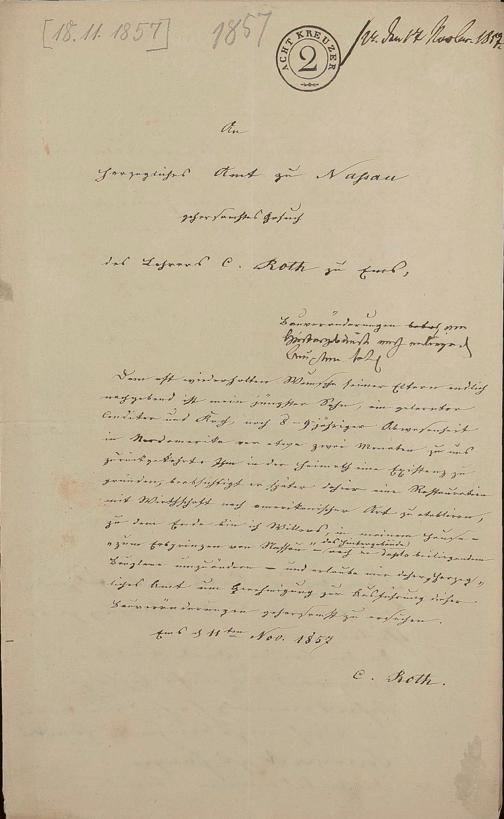 [18.11.1857]
1857
ACHT KREUZER
2
An
Herzogliches Amt zu Nassau
gehorsamstes Gesuch
des Lehrers C. Roth zu Ems,
Bauveränderungen
Dem oft wiederholten Wunsche seiner Eltern endlich
nachgebend ist mein jüngster Sohn, ein gelernter
Conditor und Koch, nach 8-9jähriger Abwesenheit
in Nordamerika vor etwa zwei Monaten zu uns
zurückgekehrt. Ihm in der Heimath eine Existenz zu
gründen, beabsichtigt er später dahier eine Restauration
mit Wirthschaft nach amerikanischer Art zu etabliren,
zu dem Ende bin ich Willens, in meinem Hause –
"zum Erbprinzen von Nassau" – das Hintergebäude, nach in duplo beiliegendem
Bauplane umzuändern – und erlaube mir daher herzog-
liches Amt um Genehmigung zur Ausführung dieser
Bauveränderungen gehorsamst zu ersuchen.
Ems d 11ten Nov. 1857
C. Roth.